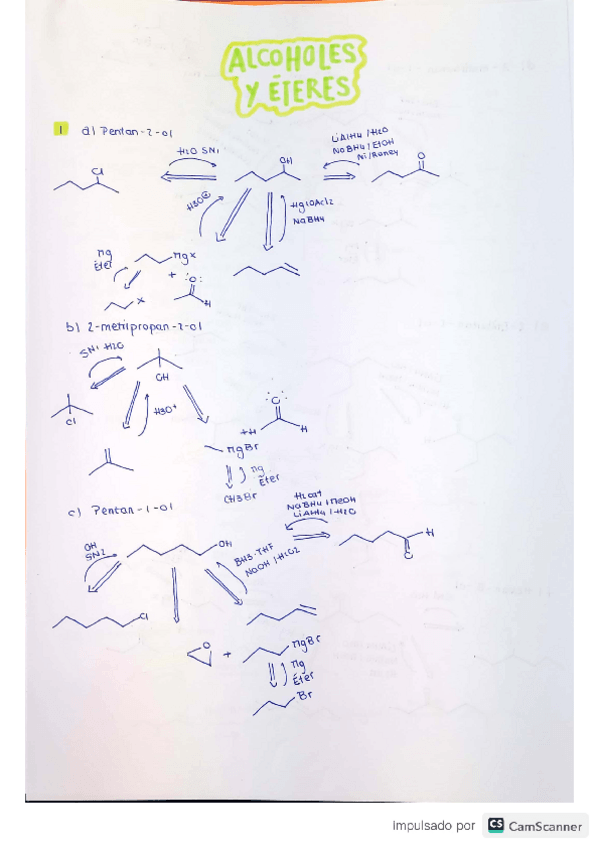 ALCOHOLES
Y ÉTERES
1 a) Pentan-2-ol
H2O SN1
LiAlH4 / H2O
NaBH4 / EtOH
Ni/Raney
Cl
OH
O
H3O⊕
Hg(OAc)2
NaBH4
Mg
Éter
MgX
+
:O:
X
H
b) 2-metilpropan-2-ol
SN1 H2O
OH
Cl
H3O+
+H
H
MgBr
Mg
Éter
CH3Br
c) Pentan-1-ol
H2 cat
NaBH4 / MeOH
LiAlH4 / H2O
OH
SN2
OH
BH3·THF
NaOH / H2O2
H
O
Cl
O
+
MgBr
Mg
Éter
Br
Impulsado por CS CamScanner